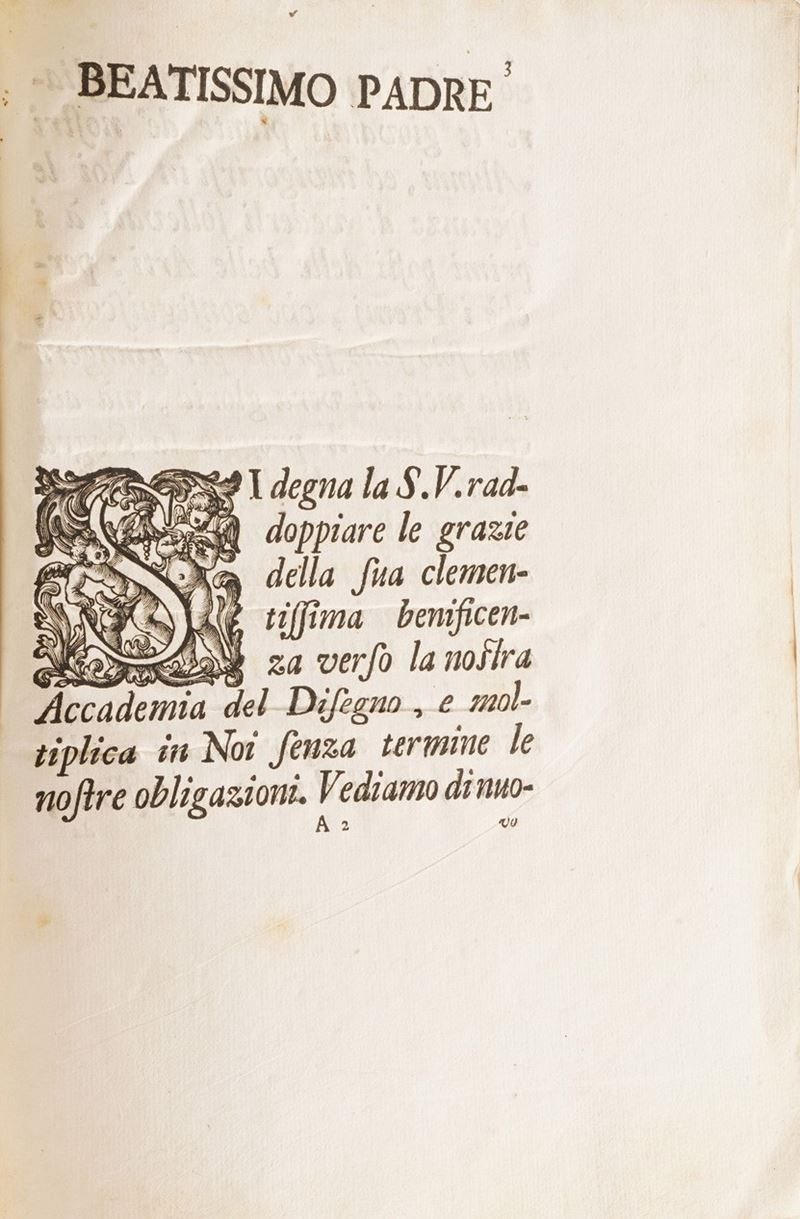 3
BEATISSIMO PADRE
SI degna la S.V. rad-
doppiare le grazie
della ſua clemen-
tiſſima benificen-
za verſo la noſtra
Accademia del Diſegno , e mol-
tiplica in Noi ſenza termine le
noſtre obligazioni. Vediamo di nuo-
A 2 vo